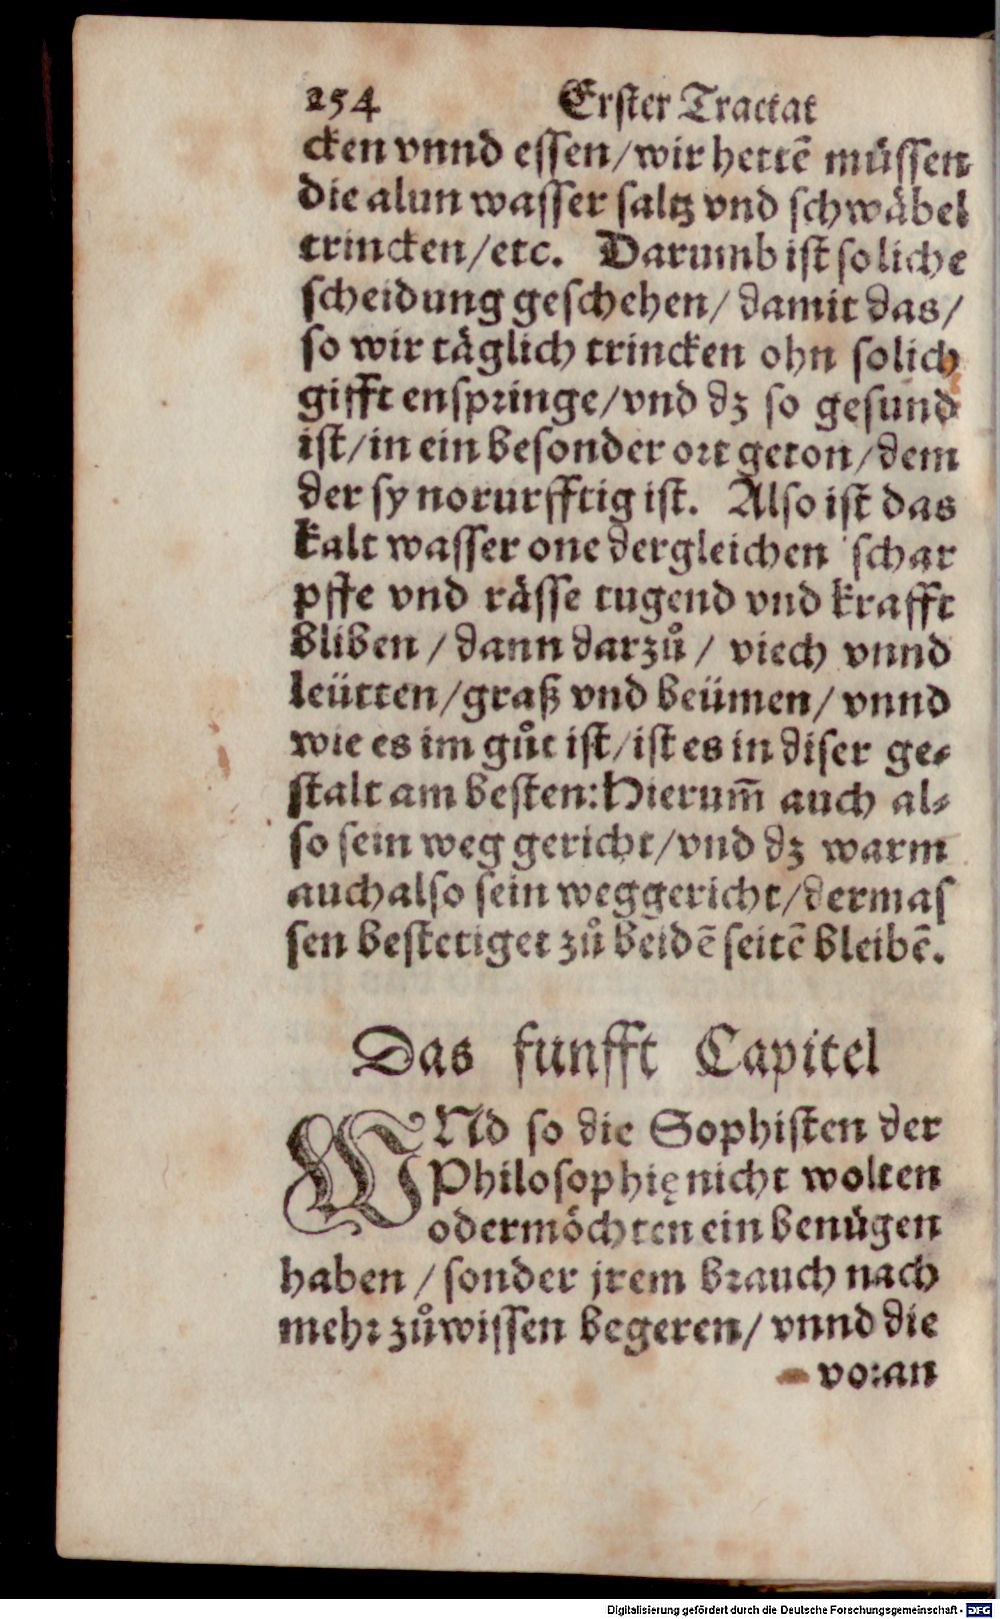 254 Erster Tractat
cken vnnd essen/wir hettē müssen
die alun wasser saltz vnd schwäbel
trincken/etc. Darumb ist soliche
scheidung geschehen/ damit das/
so wir täglich trincken ohn solich
gifft enspringe/vnd dz so gesund
ist/in ein besonder ort geton/dem
der sy noturfftig ist. Also ist das
kalt wasser one dergleichen schar
pffe vnd rässe tugend vnd krafft
bliben/dann darzů/ viech vnnd
leütten/graß vnd beümen/vnnd
wie es im gůt ist/ist es in diser ge-
stalt am besten:Hierum̄ auch al-
so sein weg gericht/vnd dz warm
auch also sein weg gericht/dermas
sen bestetiget zů beidē seitē bleibē.
Das funfft Capitel
WNd so die Sophisten der
Philosophię nicht wolten
oder möchten ein benügen
haben/sonder jrem brauch nach
mehr zůwissen begeren/vnnd die
voran
Digitalisierung gefördert durch die Deutsche Forschungsgemeinschaft - DFG